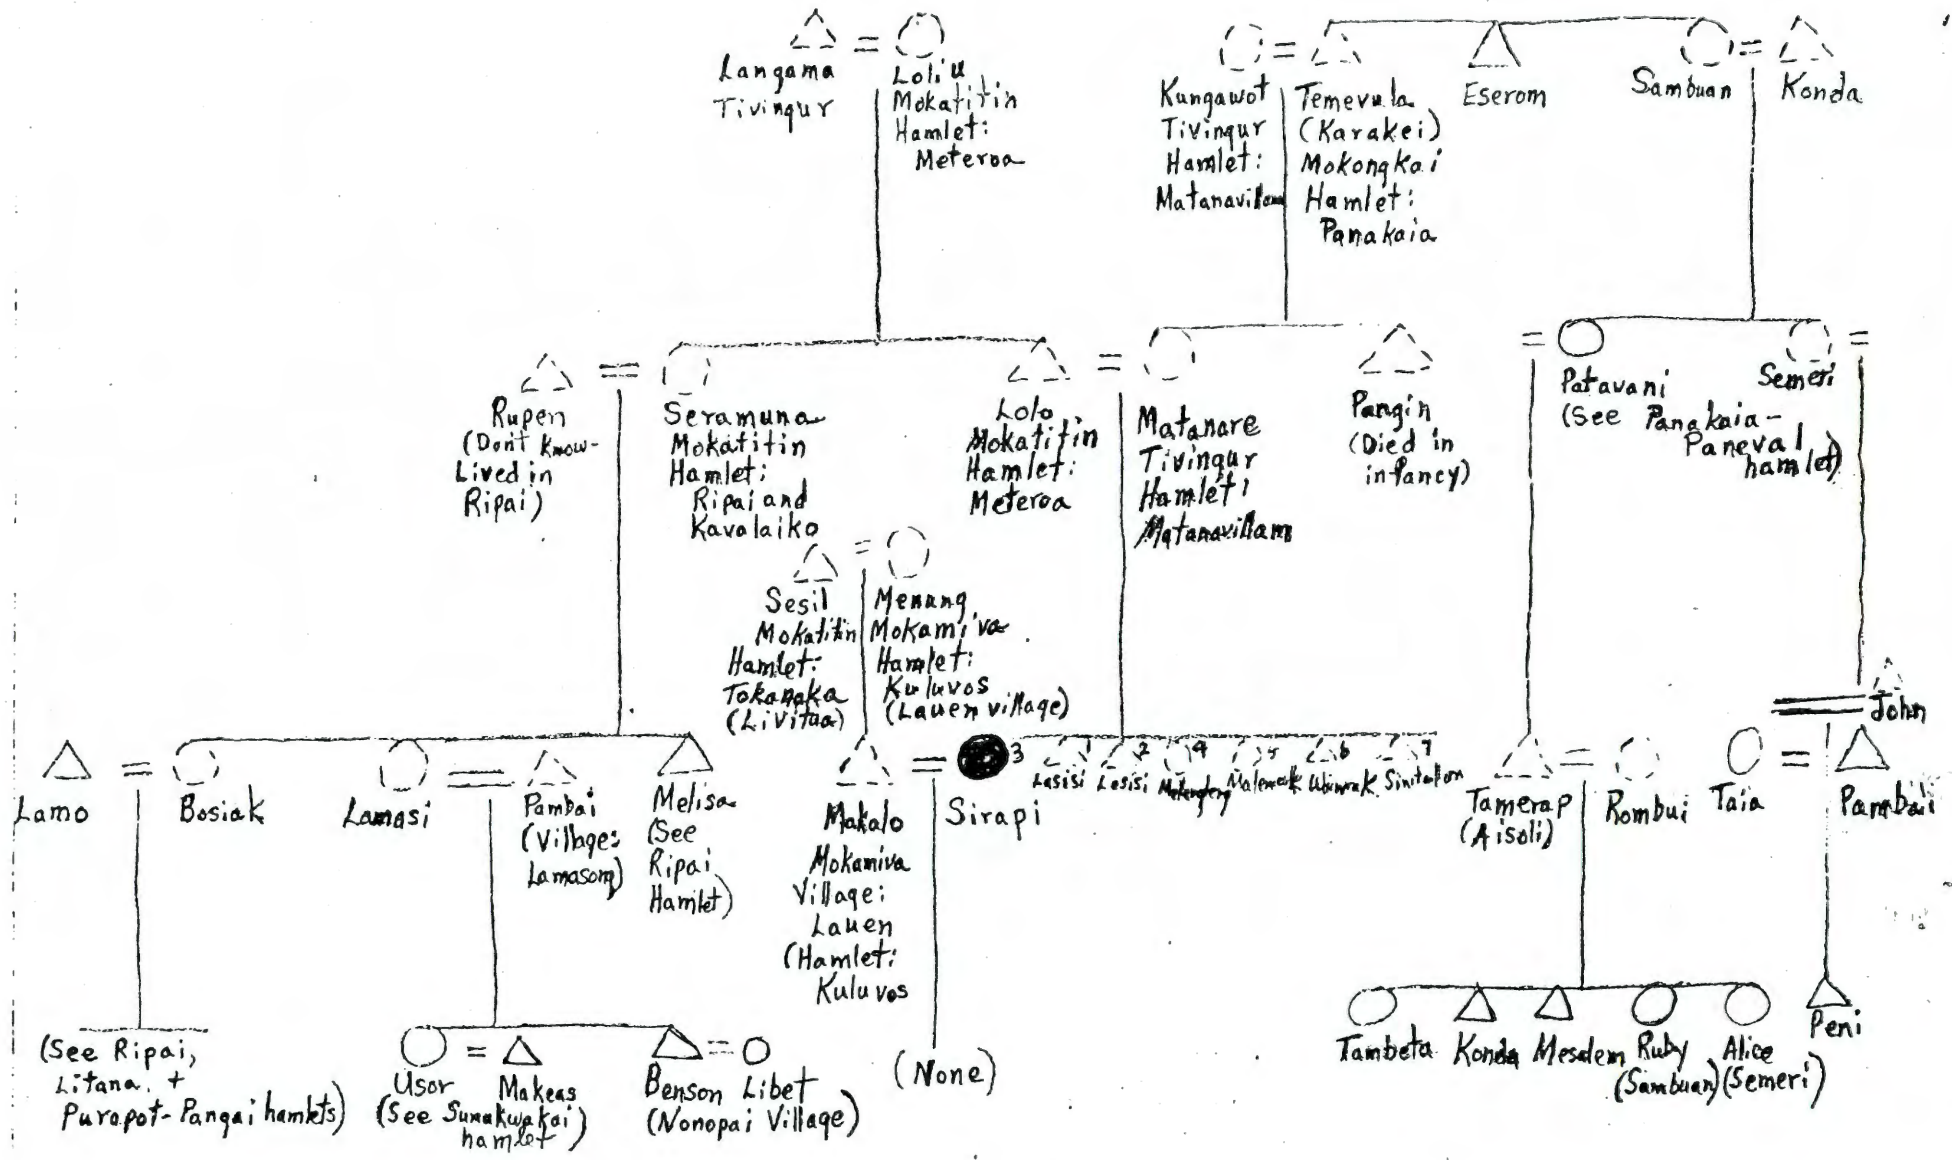 Langama
Tivingur
Loliu
Mokatitin
Hamlet:
Meteroa
Kungawot
Tivingur
Hamlet:
Matanavillam
Temevula
(Karakei)
Mokongkai
Hamlet:
Panakaia
Eserom
Sambuan
Konda
Rupen
(Don't know-
Lived in
Ripai)
Seramuna
Mokatitin
Hamlet:
Ripai and
Kavalaiko
Lolo
Mokatitin
Hamlet:
Meteroa
Matanare
Tivingur
Hamlet:
Matanavillam
Pangin
(Died in
infancy)
Patavani
(See Panakaia-
Paneval
hamlet)
Semeri
Sesil
Mokatitin
Hamlet:
Tokanaka
(Livitua)
Menang
Mokamiva
Hamlet:
Kuluvos
(Lauen village)
John
Lamo
Bosiak
Lamasi
Pambai
(Village:
Lamasong)
Melisa
(See
Ripai
Hamlet)
Makalo
Mokamiva
Village:
Lauen
(Hamlet:
Kuluvos
Sirapi
3
1
Lasisi
2
Lasisi
4
5
6
7
Tamerap
(Aisoli)
Rombui
Taia
Pambaii
(See Ripai,
Litana, +
Purapot-Pangai hamlets)
Usor
Makeas
(See Sunakwakai
hamlet)
Benson Libet
(Nonopai Village)
(None)
Tambeta Konda Mesalem Ruby Alice
(Sambuan) (Semeri)
Peni